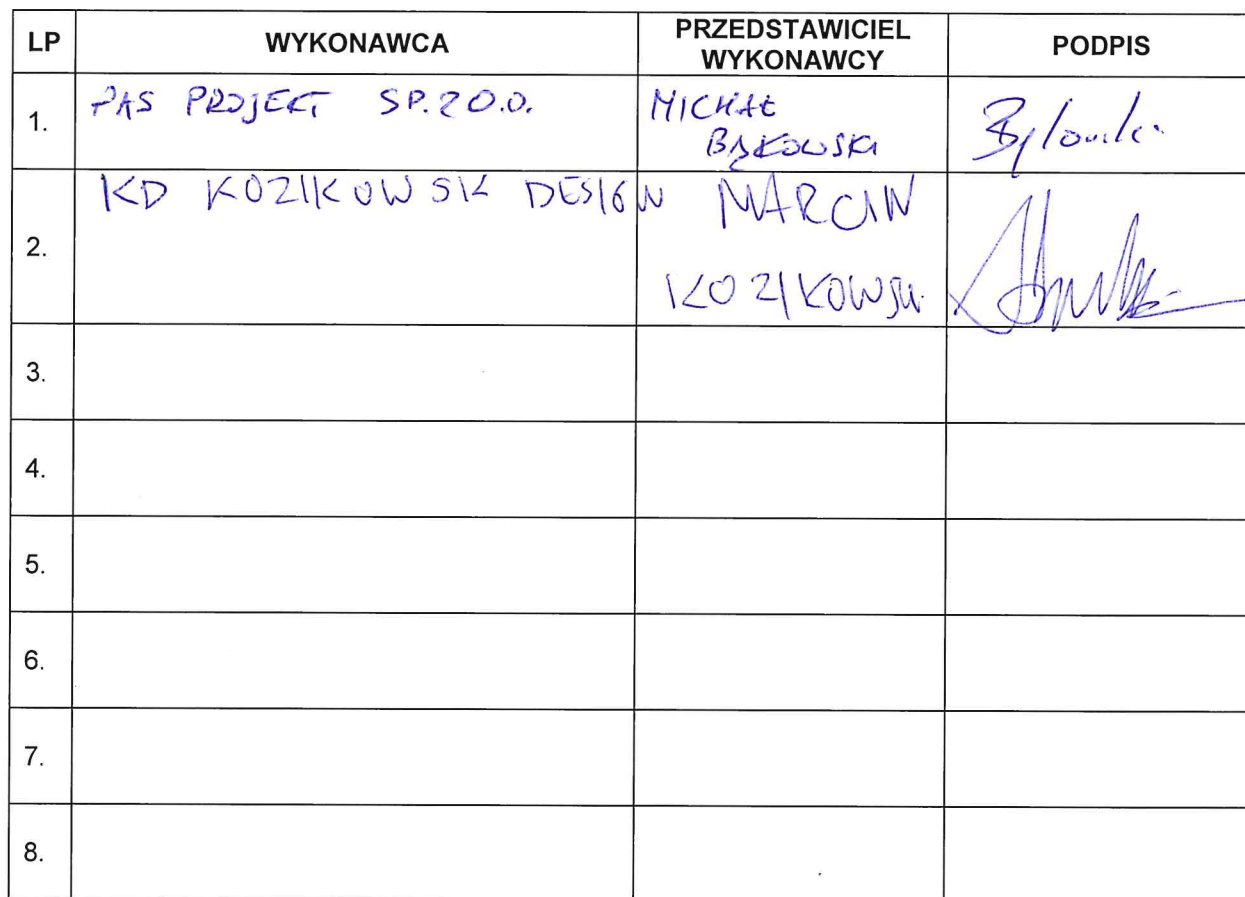 LP WYKONAWCA PRZEDSTAWICIEL WYKONAWCY PODPIS
1. PAS PROJEKT SP. Z O.O. MICHAŁ
BĄKOWSKI
KD KOZIKOWSK DESIGN MARCIN
2.
KOZIKOWSKI
3.
4.
5.
6.
7.
8.